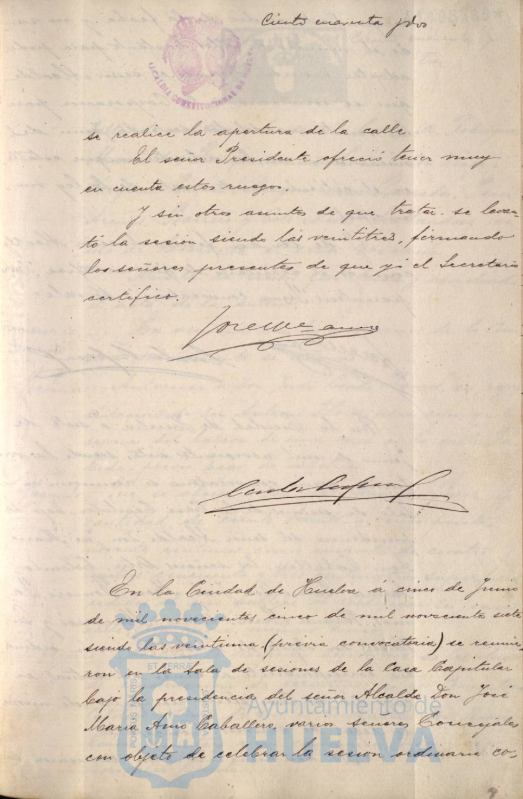 Ciento cuarenta y dos
ALCALDIA CONSTITUCIONAL DE HUELVA
se realice la apertura de la calle
El señor Presidente ofreció tener muy
en cuenta estos ruegos.
Y sin otros asuntos de que tratar se levan-
tó la sesión siendo las veintitres, firmando
los señores presentes de que yó el Secretario
certifico.
En la Ciudad de Huelva á cinco de Junio
de mil novecientos cinco de mil novecientos siete
siendo las veintiuna (previa convocatoria) se reunie-
ron en la Sala de sesiones de la Casa Capitular
bajo la presidencia del señor Alcalde Don José
Maria Amo Caballero, varios señores Concejales
con objeto de celebrar la sesión ordinaria co-
Ayuntamiento de
HUELVA